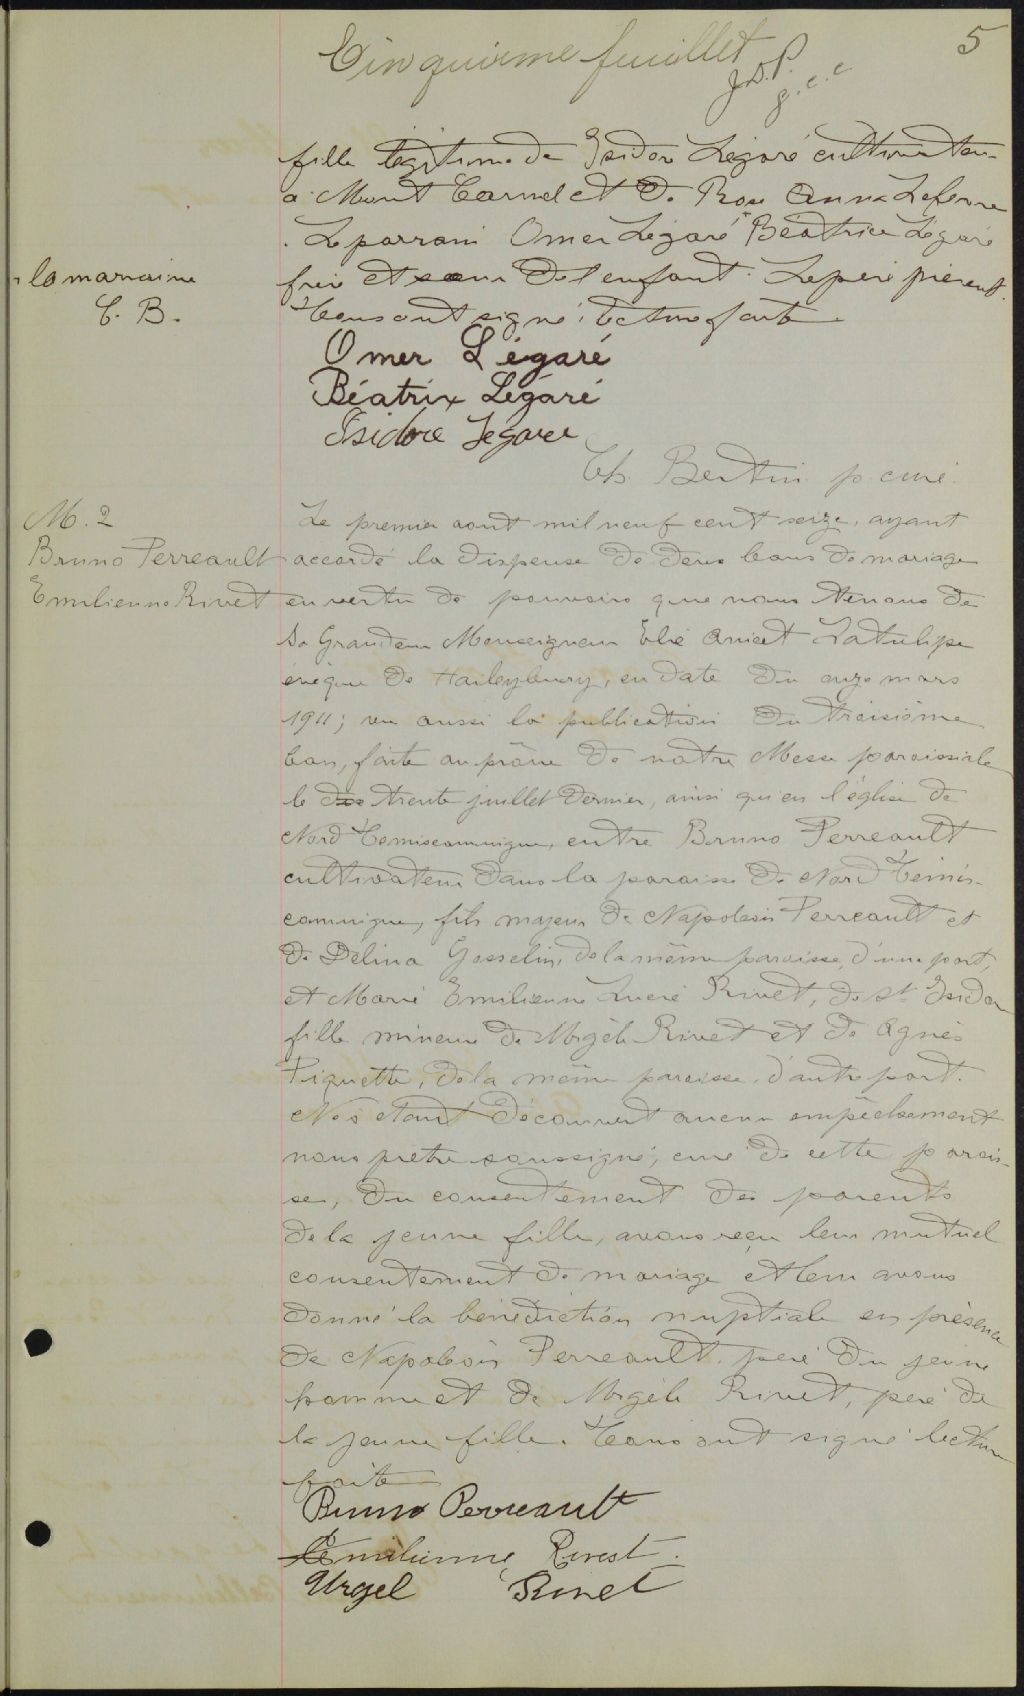 Cinquième feuillet
5
J.D.P.
g.c.c
fille légitime de Isidore Légaré cultivateur
à Mount Carmel et de Rose Anna Lefevre
. Le parrain Omer Légaré Béatrice Légaré
la marraine
C. B.
frère et soeur de l'enfant. Le père présent.
Tous ont signé; lecture faite
Omer Légaré
Béatrix Légaré
Isidore Legaré
Ch. Bertin p. curé.
M. 2
Bruno Perreault
Emilienne Rivet
Le premier aout mil neuf cent seize, ayant
accordé la dispense de deux bans de mariage
en vertu de pouvoirs que nous tenons de
Sa Grandeur Monseigneur Elie Anicet Latulipe
évêque de Haileybury, en date du onze mars
1911; vu aussi la publication du troisième
ban, faite au prône de notre Messe paroissiale
le trente juillet dernier, ainsi qu'en l'église de
Nord Temiscamingue, entre Bruno Perreault
cultivateur dans la paroisse de Nord Témis-
camingue, fils majeur de Napoléon Perreault et
de Délina Gosselin, de la même paroisse, d'une part,
et Marie Emilienne Lucie Rivet, de St Isidore
fille mineure de Urgèle Rivet et de Agnès
Piquette, de la même paroisse, d'autre part.
Ne s'étant découvert aucun empêchement
nous prêtre soussigné, curé de cette parois-
se, du consentement des parents
de la jeune fille, avons reçu leur mutuel
consentement de mariage et leur avons
donné la bénédiction nuptiale en présence
de Napoléon Perreault, père du jeune
homme et de Urgèle Rivet, père de
la jeune fille. Tous ont signé lecture
faite
Bruno Perreault
Emilienne Rivest.
Urgel Rivet